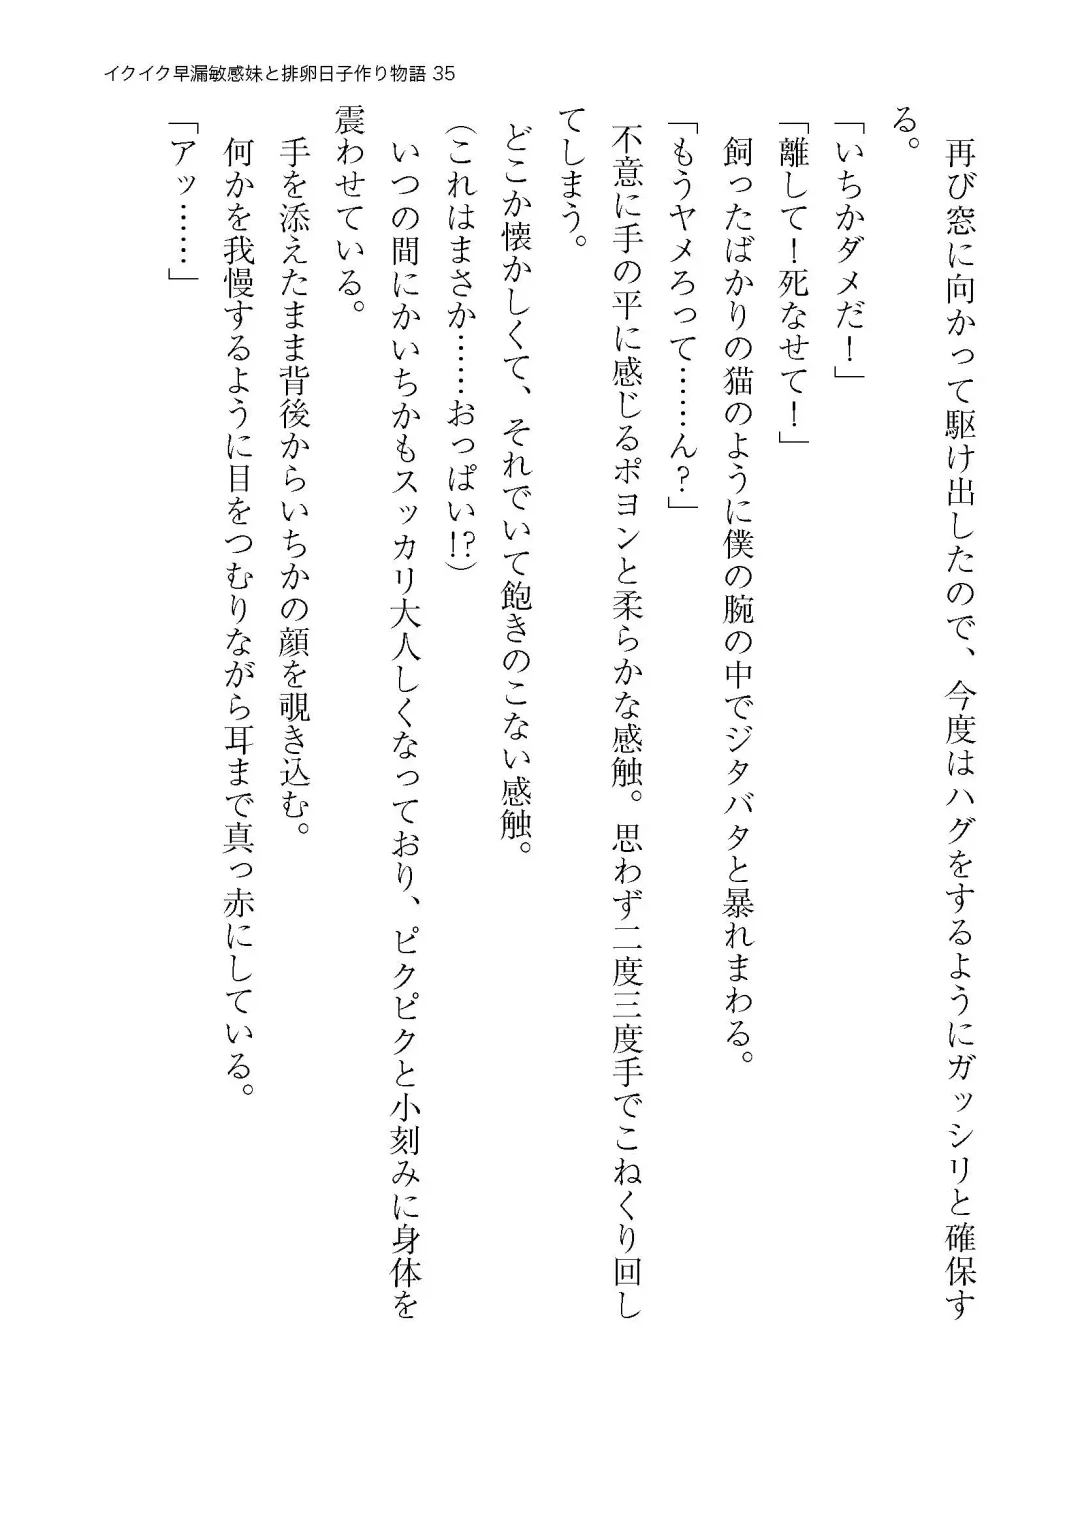 イクイク早漏敏感妹と排卵日子作り物語 35
再び窓に向かって駆け出したので、今度はハグをするようにガッシリと確保す
る。
「いちかダメだ！」
「離して！死なせて！」
飼ったばかりの猫のように僕の腕の中でジタバタと暴れまわる。
「もうヤメろって……ん？」
不意に手の平に感じるポヨンと柔らかな感触。思わず二度三度手でこねくり回し
てしまう。
どこか懐かしくて、それでいて飽きのこない感触。
（これはまさか……おっぱい!?）
いつの間にかいちかもスッカリ大人しくなっており、ピクピクと小刻みに身体を
震わせている。
手を添えたまま背後からいちかの顔を覗き込む。
何かを我慢するように目をつむりながら耳まで真っ赤にしている。
「アッ……」